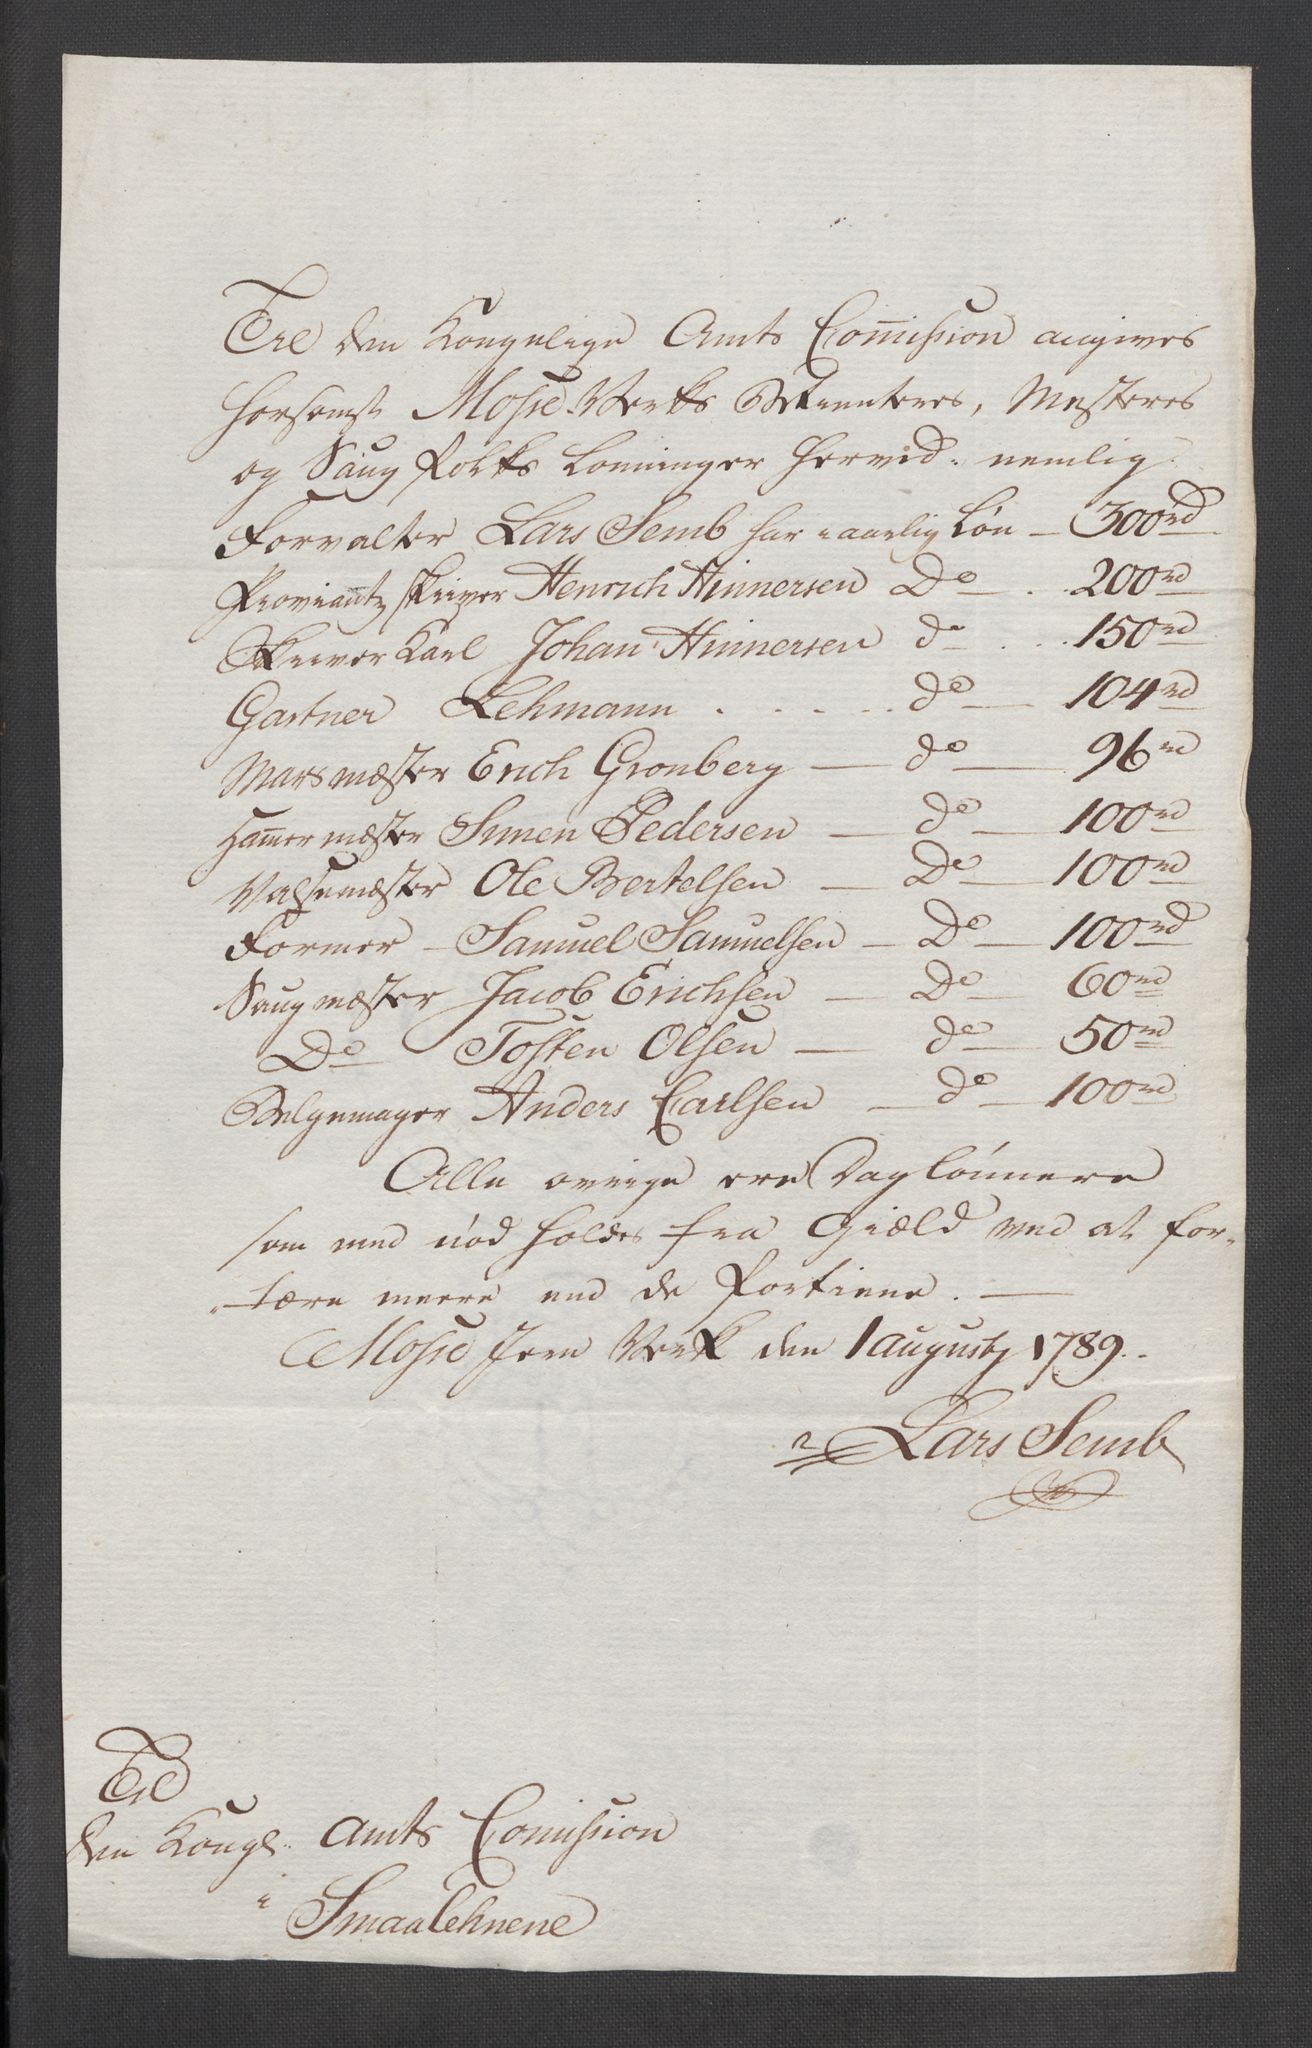 Til den Kongelige Amts Com̅ission angives
hersomst Mosse-Værks Betienteres, Mesteres
og Saug Folks Lønninger herved. nemlig.
Forvalter Lars Semb har aarlig Løn — 300rd
Proviantz skriver Henrich Hinnersen Do . . 200rd
Skriver Karl Johan Hinnersen do . . . 150rd
Gartner Lehmann . . . . . do — 104rd
Marsmæster Erich Gronberg — do — 96rd
Ham̅ermæster Simen Pedersen — do — 100rd
Valsemæster Ole Bertelsen — Do — 100rd
Former — Samuel Samuelsen — Do — 100rd
Saugmæster Jacob Erichsen — Do — 60rd
Do Tosten Olsen — do — 50rd
Belgemager Anders Carlsen — do — 100rd
Alle øvrige ere Daglønnere
som med nød holdes fra Giæld ved at for-
-tære meere end de Fortiene. —
Mosse Jern Værk den 1 augustj 1789.
Lars Semb
Til
den Kongl. Amts Comission
i
Smaalehnene